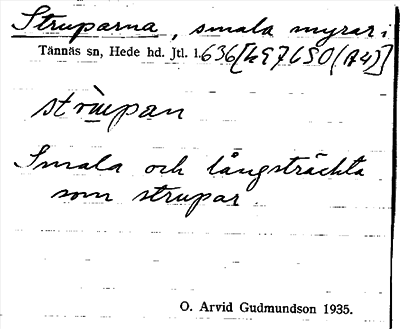 Struparna, smala myrar i
Tännäs sn, Hede hd. Jtl. l. 636 [497650 (A4)]
strùpan
Smala och långsträckta
som strupar.
O. Arvid Gudmundson 1935.